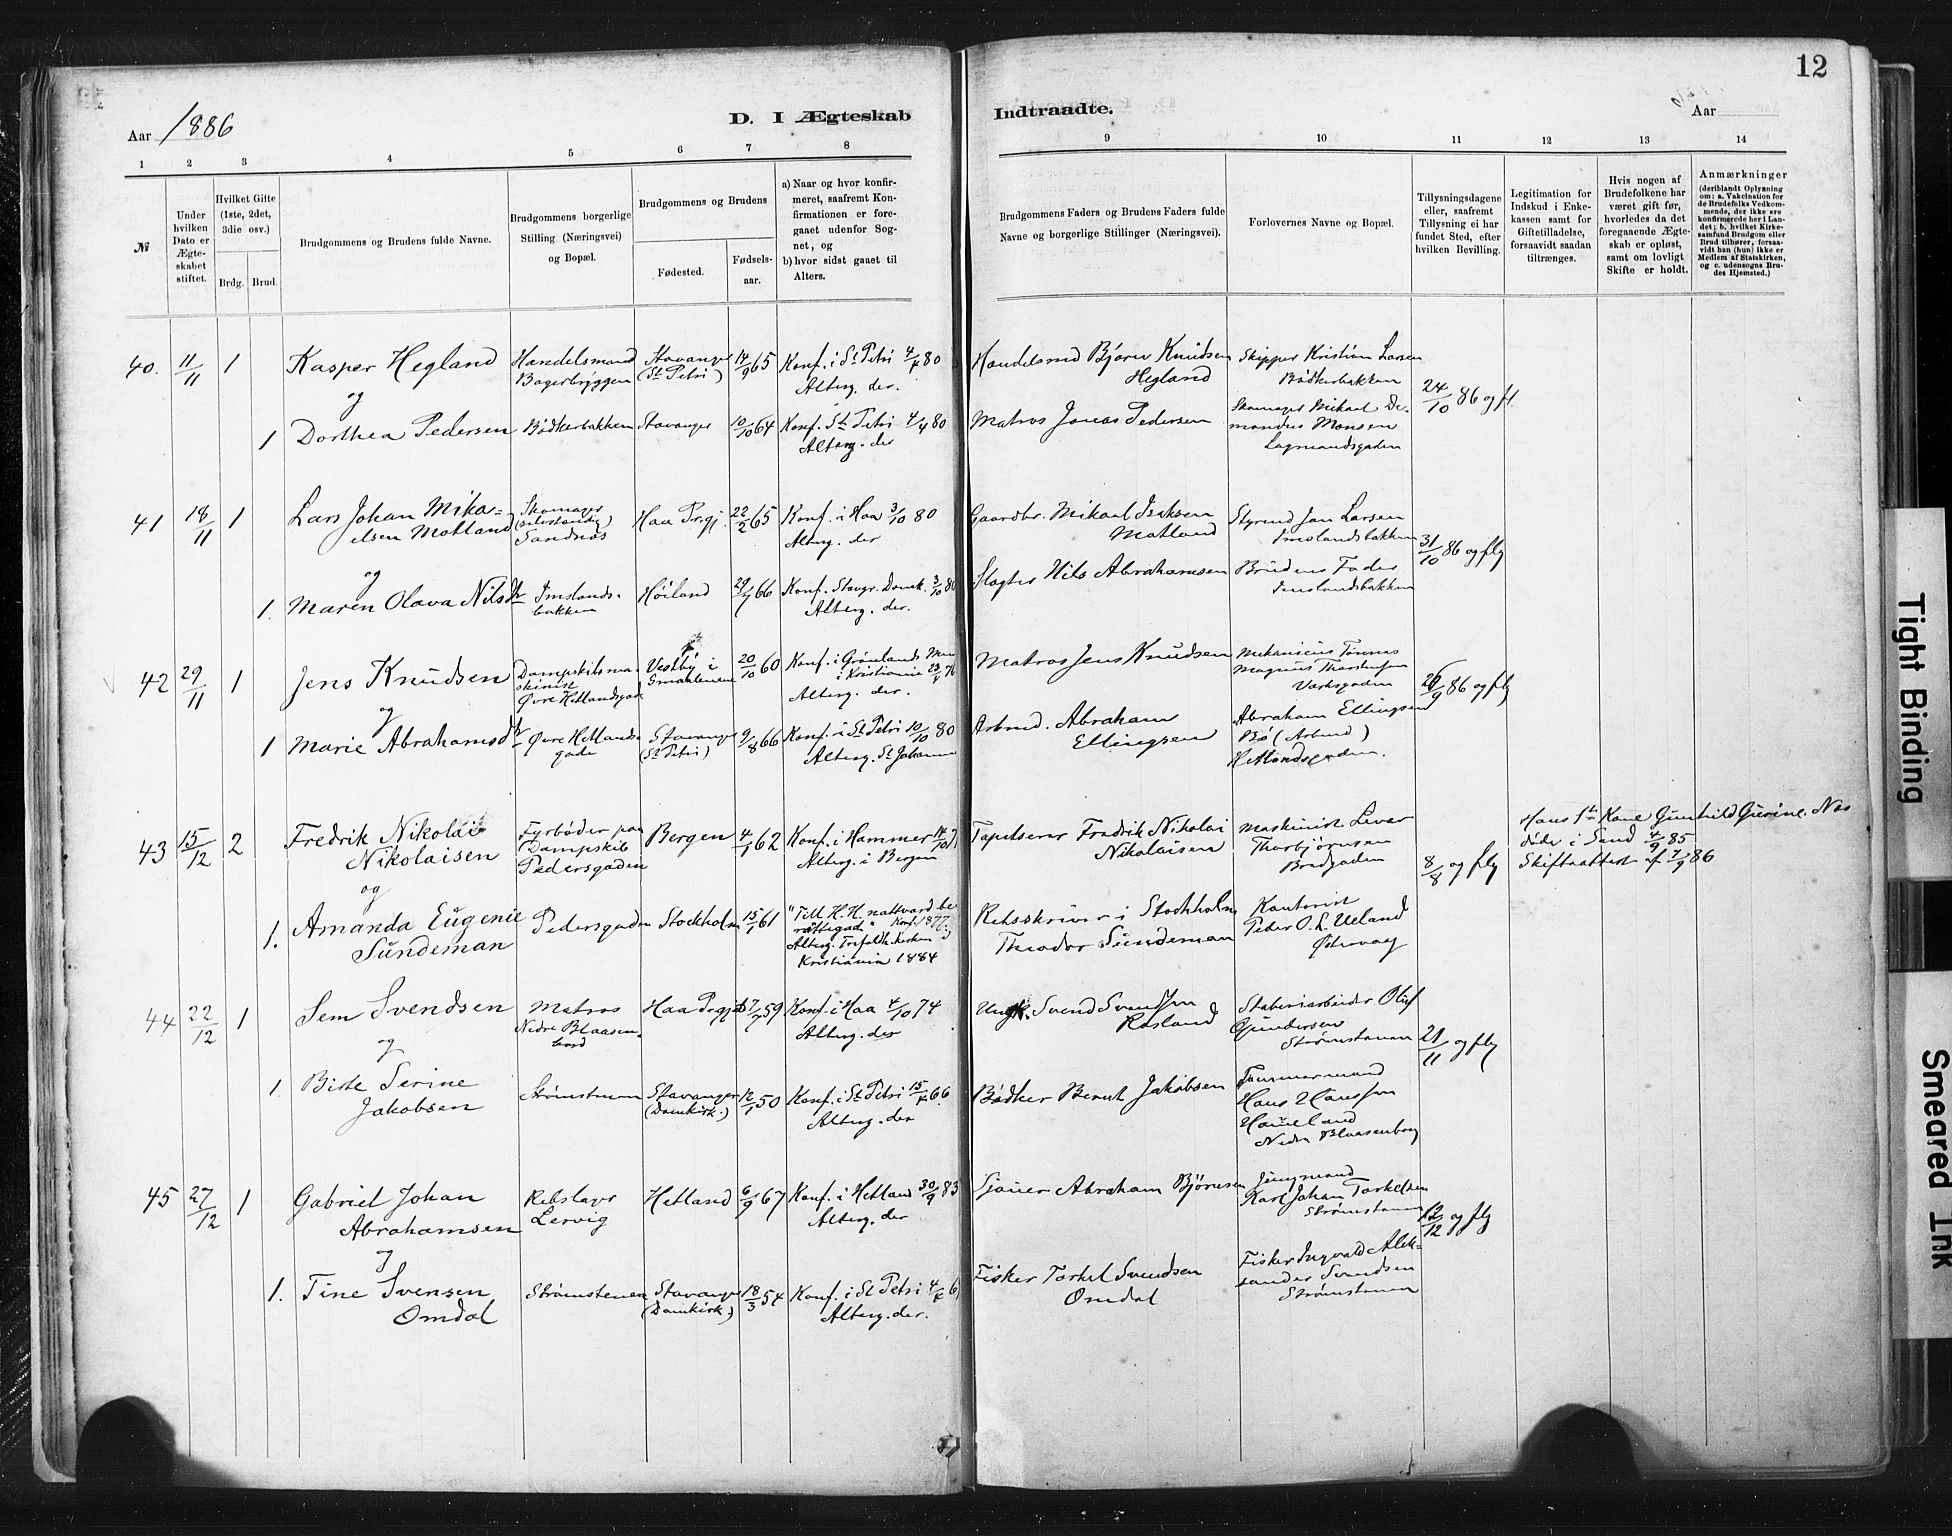 12
Aar 1886
D. I Ægteskab
Indtraadte.
Aar
1 2 3 4 5 6 7 8 9 10 11 12 13 14
№
Under hvilken Dato er Ægteskabet stiftet.
Hvilket Gifte (1ste, 2det, 3die osv.)
Brdg. Brud.
Brudgommens og Brudens fulde Navne.
Brudgommens borgerlige Stilling (Næringsvei) og Bopæl.
Brudgommens og Brudens
Fødested. Fødselsaar.
a) Naar og hvor konfirmeret, saafremt Konfirmationen er foregaaet udenfor Sognet, og
b) hvor sidst gaaet til Alters.
Brudgommens Faders og Brudens Faders fulde Navne og borgerlige Stillinger (Næringsvei).
Forlovernes Navne og Bopæl.
Tillysningsdagene eller, saafremt Tillysning ei har fundet Sted, efter hvilken Bevilling.
Legitimation for Indskud i Enkekassen samt for Giftetilladelse, forsaavidt saadan tiltrænges.
Hvis nogen af Brudefolkene har været gift før, hvorledes da det foregaaende Ægteskab er opløst, samt om lovligt Skifte er holdt.
Anmærkninger
(deriblandt Oplysning om: a. Vakcination for de Brudefolks Vedkommende, der ikke ere konfirmerede her i Landet; b. hvilket Kirkesamfund Brudgom eller Brud tilhører, forsaavidt han (hun) ikke er Medlem af Statskirken, og c. udensogns Brudes Hjemsted.)
40. 11/11 1 Kasper Hegland Handelsmand Stavanger (St Petri) 14/9 65 Konf. i St Petri 4/4 80 Alterg. der. Handelsmd Bjørn Knudsen Hegland Skipper Kristian Larsen Bødkerbakken 24/10 86 og fl.
og
1 Dorthea Pedersen Bødkerbakken Stavanger 10/10 64 Konf. St Petri 4/4 80 Alterg. der Matros Jonas Pedersen Skomager Mikael Monsen Lagmandsgaden
41 18/11 1 Lars Johan Mikaelsen Matland Skomager (selvstændig) Sandnæs Haa Prgj. 22/2 65 Konf. i Haa 3/10 80 Alterg. der Gaardbr. Mikael Isaksen Matland Styrmd Jan Larsen Imslandsbakken 31/10 86 og flg
og
1. Maren Olava Nilsdtr Imslandsbakken Høiland 66 Konf. Stavgr. Domk. 3/10 80 Alterg. der. Slagter Nils Abrahamsen Brudens Fader Imslandsbakken
42 29/11 1 Jens Knudsen Dampskibsmaskinist Øvre Hetlandsgade Vestby i Smaalenene 20/10 60 Konf. i Grønlands Alterg. der. Matros Jens Knudsen Mekanicus Tønnes Magnus Thorsen Værksgaden 86 og flg
og
1 Marie Abrahamsdtr Øvre Hetlandsgade Stavanger (St Petri) 9/8 66 Konf. i St Petri 10/10 80 Alterg. St Johannes Arbmd. Abraham Ellingsen Abraham Ellingsen Bø (Arbmd) Hetlandsgaden.
43 15/12 2 Fredrik Nikolai Nikolaisen Fyrbøder paa Dampskib Pedersgaden Bergen 4/1 62 Konf. i Hammer Alterg. i Bergen Tapetserer Fredrik Nikolai Nikolaisen Maskinist Thorbjørnsen Bredgaden 8/8 og flg Hans 1ste Kone Gunhild Gurine døde i Sand 4/9 85 Skifteattest af 7/9 86
og
1. Amanda Eugenie Sundeman Pedersgaden Stockholm 15/1 61 "Till H. H. nattvard berättigade" Konf. 1877. Alterg. Trefoldh. Kirken Kristiania 1884 Retsskriver i Stockholm Theodor Sundeman Kontorist Peder O. L. Ueland Østervaag
44 22/12 1 Sem Svendsen Matros Nedre Blaasenborg Haa Prgjd 59 Konf. i Haa 4/10 74 Alterg. der Ungk. Svend Svendsen Rosland Støberiarbeider Oluf Gundersen Strømstenen 21/11 og flg
og
1. Birte Serine Jakobsen Strømstenen Stavanger (Domkirk.) 12/1 50 Konf. i St Petri 15/4 66 Alterg. der Bødker Bernt Jakobsen Tømmermand Hans Hansen Haueland Nedre Blaasenborg
45 27/12 1 Gabriel Johan Abrahamsen Rebslager Lervig Hetland 6/9 67 Konf. i Hetland 30/9 83 Alterg. der Sjauer Abraham Bjørnsen Jungmand Karl Johan Torkelsen Strømstenen 12/12 og flg
og
1. Tine Svensen Omdal Strømstenen Stavanger (Domkirk.) 18/3 54 Konf. i St Petri Alterg. der. Fisker Torkel Svendsen Omdal Fisker Ingvald Aleksander Svendsen Strømstenen
Tight Binding
Smeared Ink